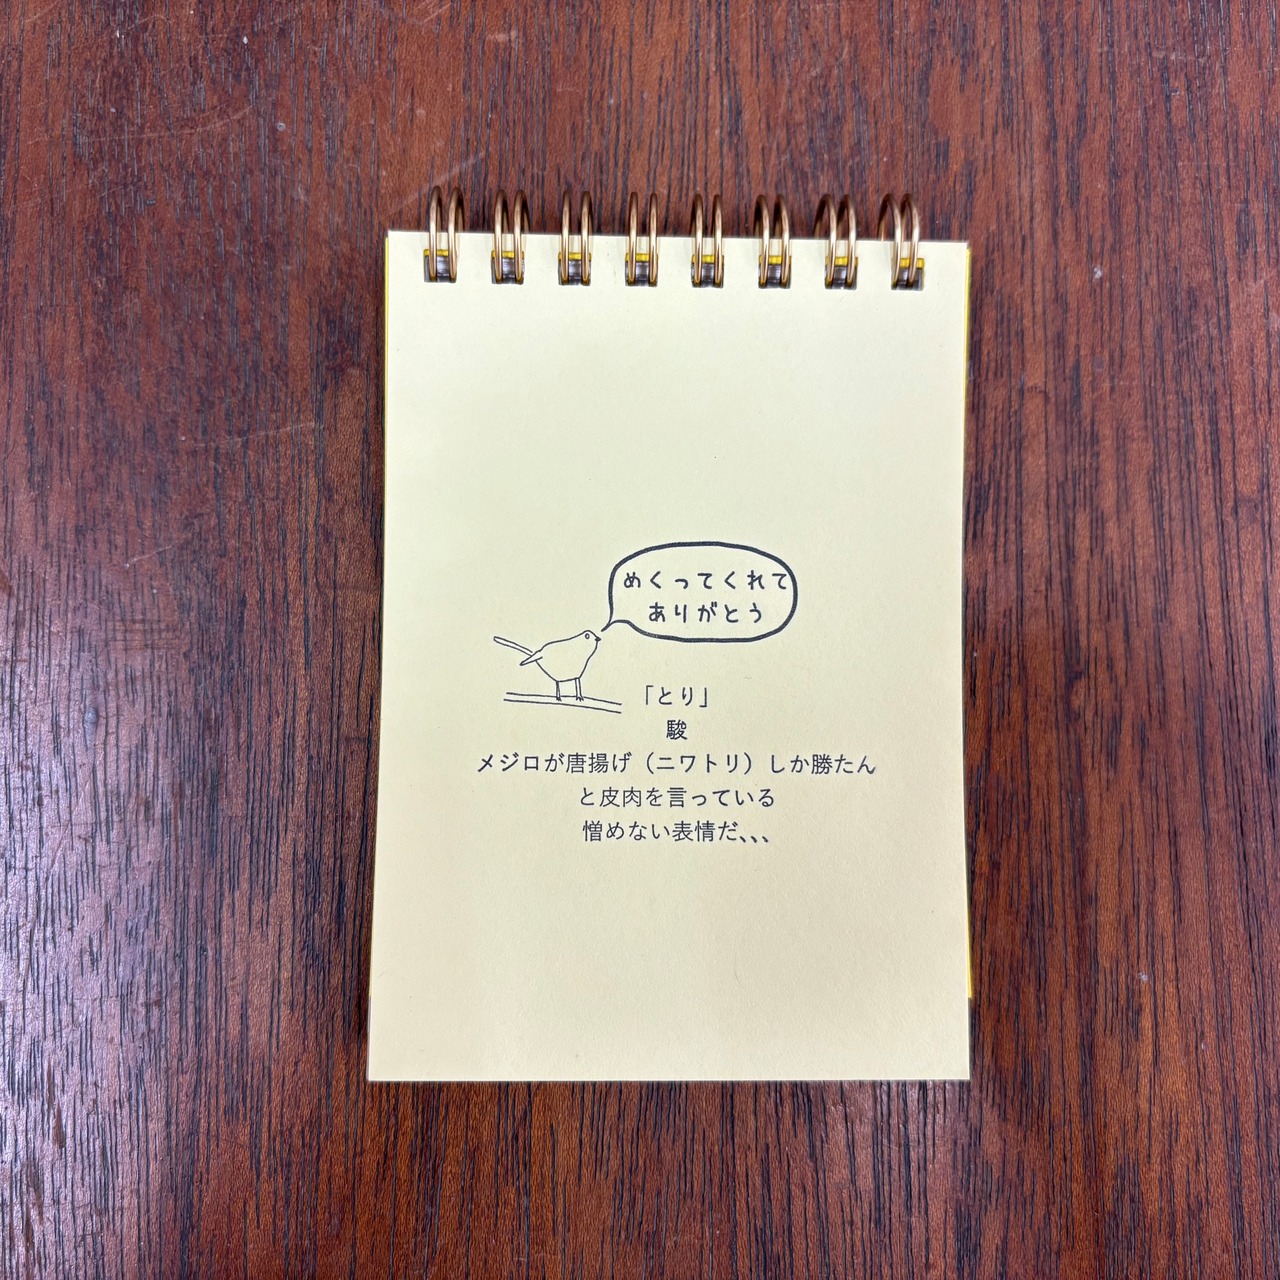 めくってくれて
ありがとう
「とり」
駿
メジロが唐揚げ（ニワトリ）しか勝たん
と皮肉を言っている
憎めない表情だ、、、